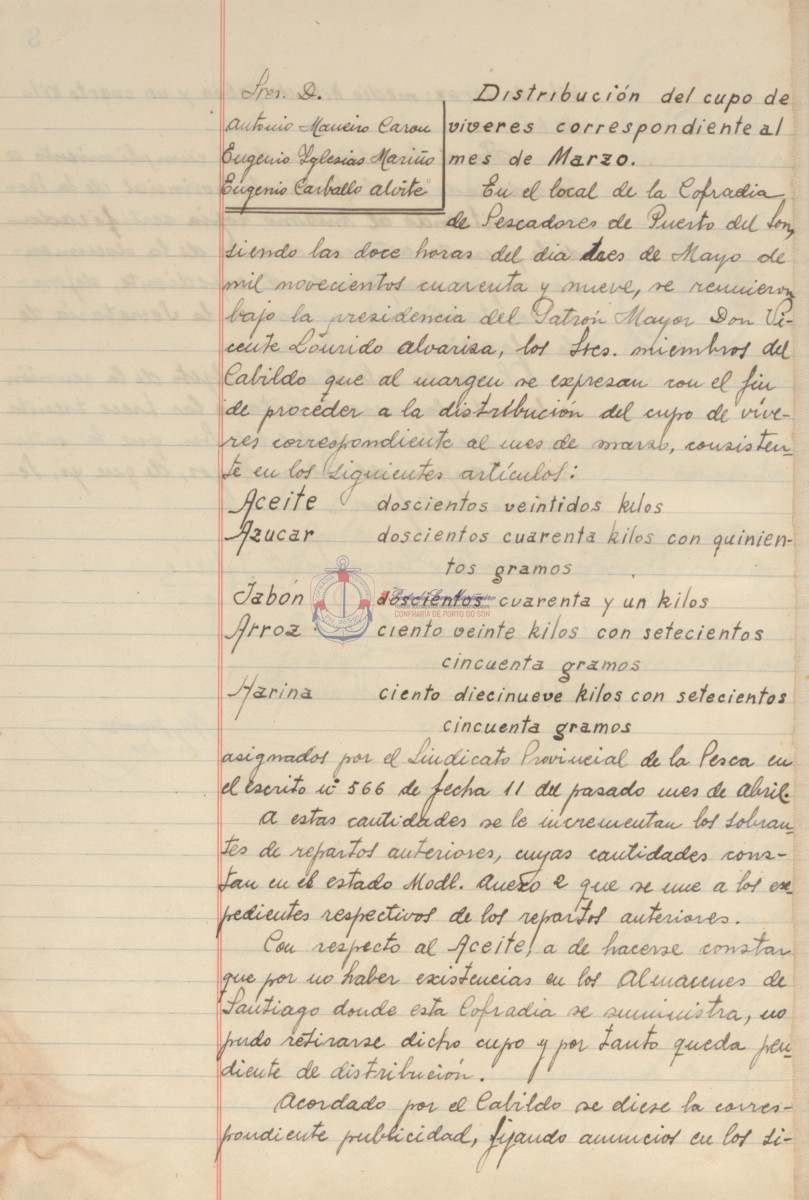 Sres. D.
Antonio Maneiro Carou
Eugenio Yglesias Mariño
Eugenio Carballo Alvite"
Distribución del cupo de
viveres correspondiente al
mes de Marzo.
En el local de la Cofradia
de Pescadores de Puerto del Son,
siendo las doce horas del dia tres de Mayo de
mil novecientos cuarenta y nueve, se reunieron
bajo la presidencia del Patrón Mayor Don Vi-
cente Lourido Alvariza, los Sres. miembros del
Cabildo que al margen se expresan con el fin
de proceder a la distribución del cupo de víve-
res correspondiente al mes de marzo, consisten-
te en los siguientes artículos:
Aceite doscientos veintidos kilos
Azucar doscientos cuarenta kilos con quinien-
tos gramos
Jabón doscientos cuarenta y un kilos
CONFRARÍA DE PORTO DO SON
Arroz ciento veinte kilos con setecientos
cincuenta gramos
Harina ciento diecinueve kilos con setecientos
cincuenta gramos
asignados por el Sindicato Provincial de la Pesca en
el escrito nº 566 de fecha 11 del pasado mes de Abril.
A estas cantidades se le incrementan los sobran-
tes de repartos anteriores, cuyas cantidades cons-
tan en el estado Modl. Anexo 2 que se une a los ex-
pedientes respectivos de los repartos anteriores.
Con respecto al Aceite, a de hacerse constar
que por no haber existencias en los Almacenes de
Santiago donde esta Cofradia se suministra, no
pudo retirarse dicho cupo y por tanto queda pen-
diente de distribución.
Acordado por el Cabildo se diese la corres-
pondiente publicidad, fijando anuncios en los si-